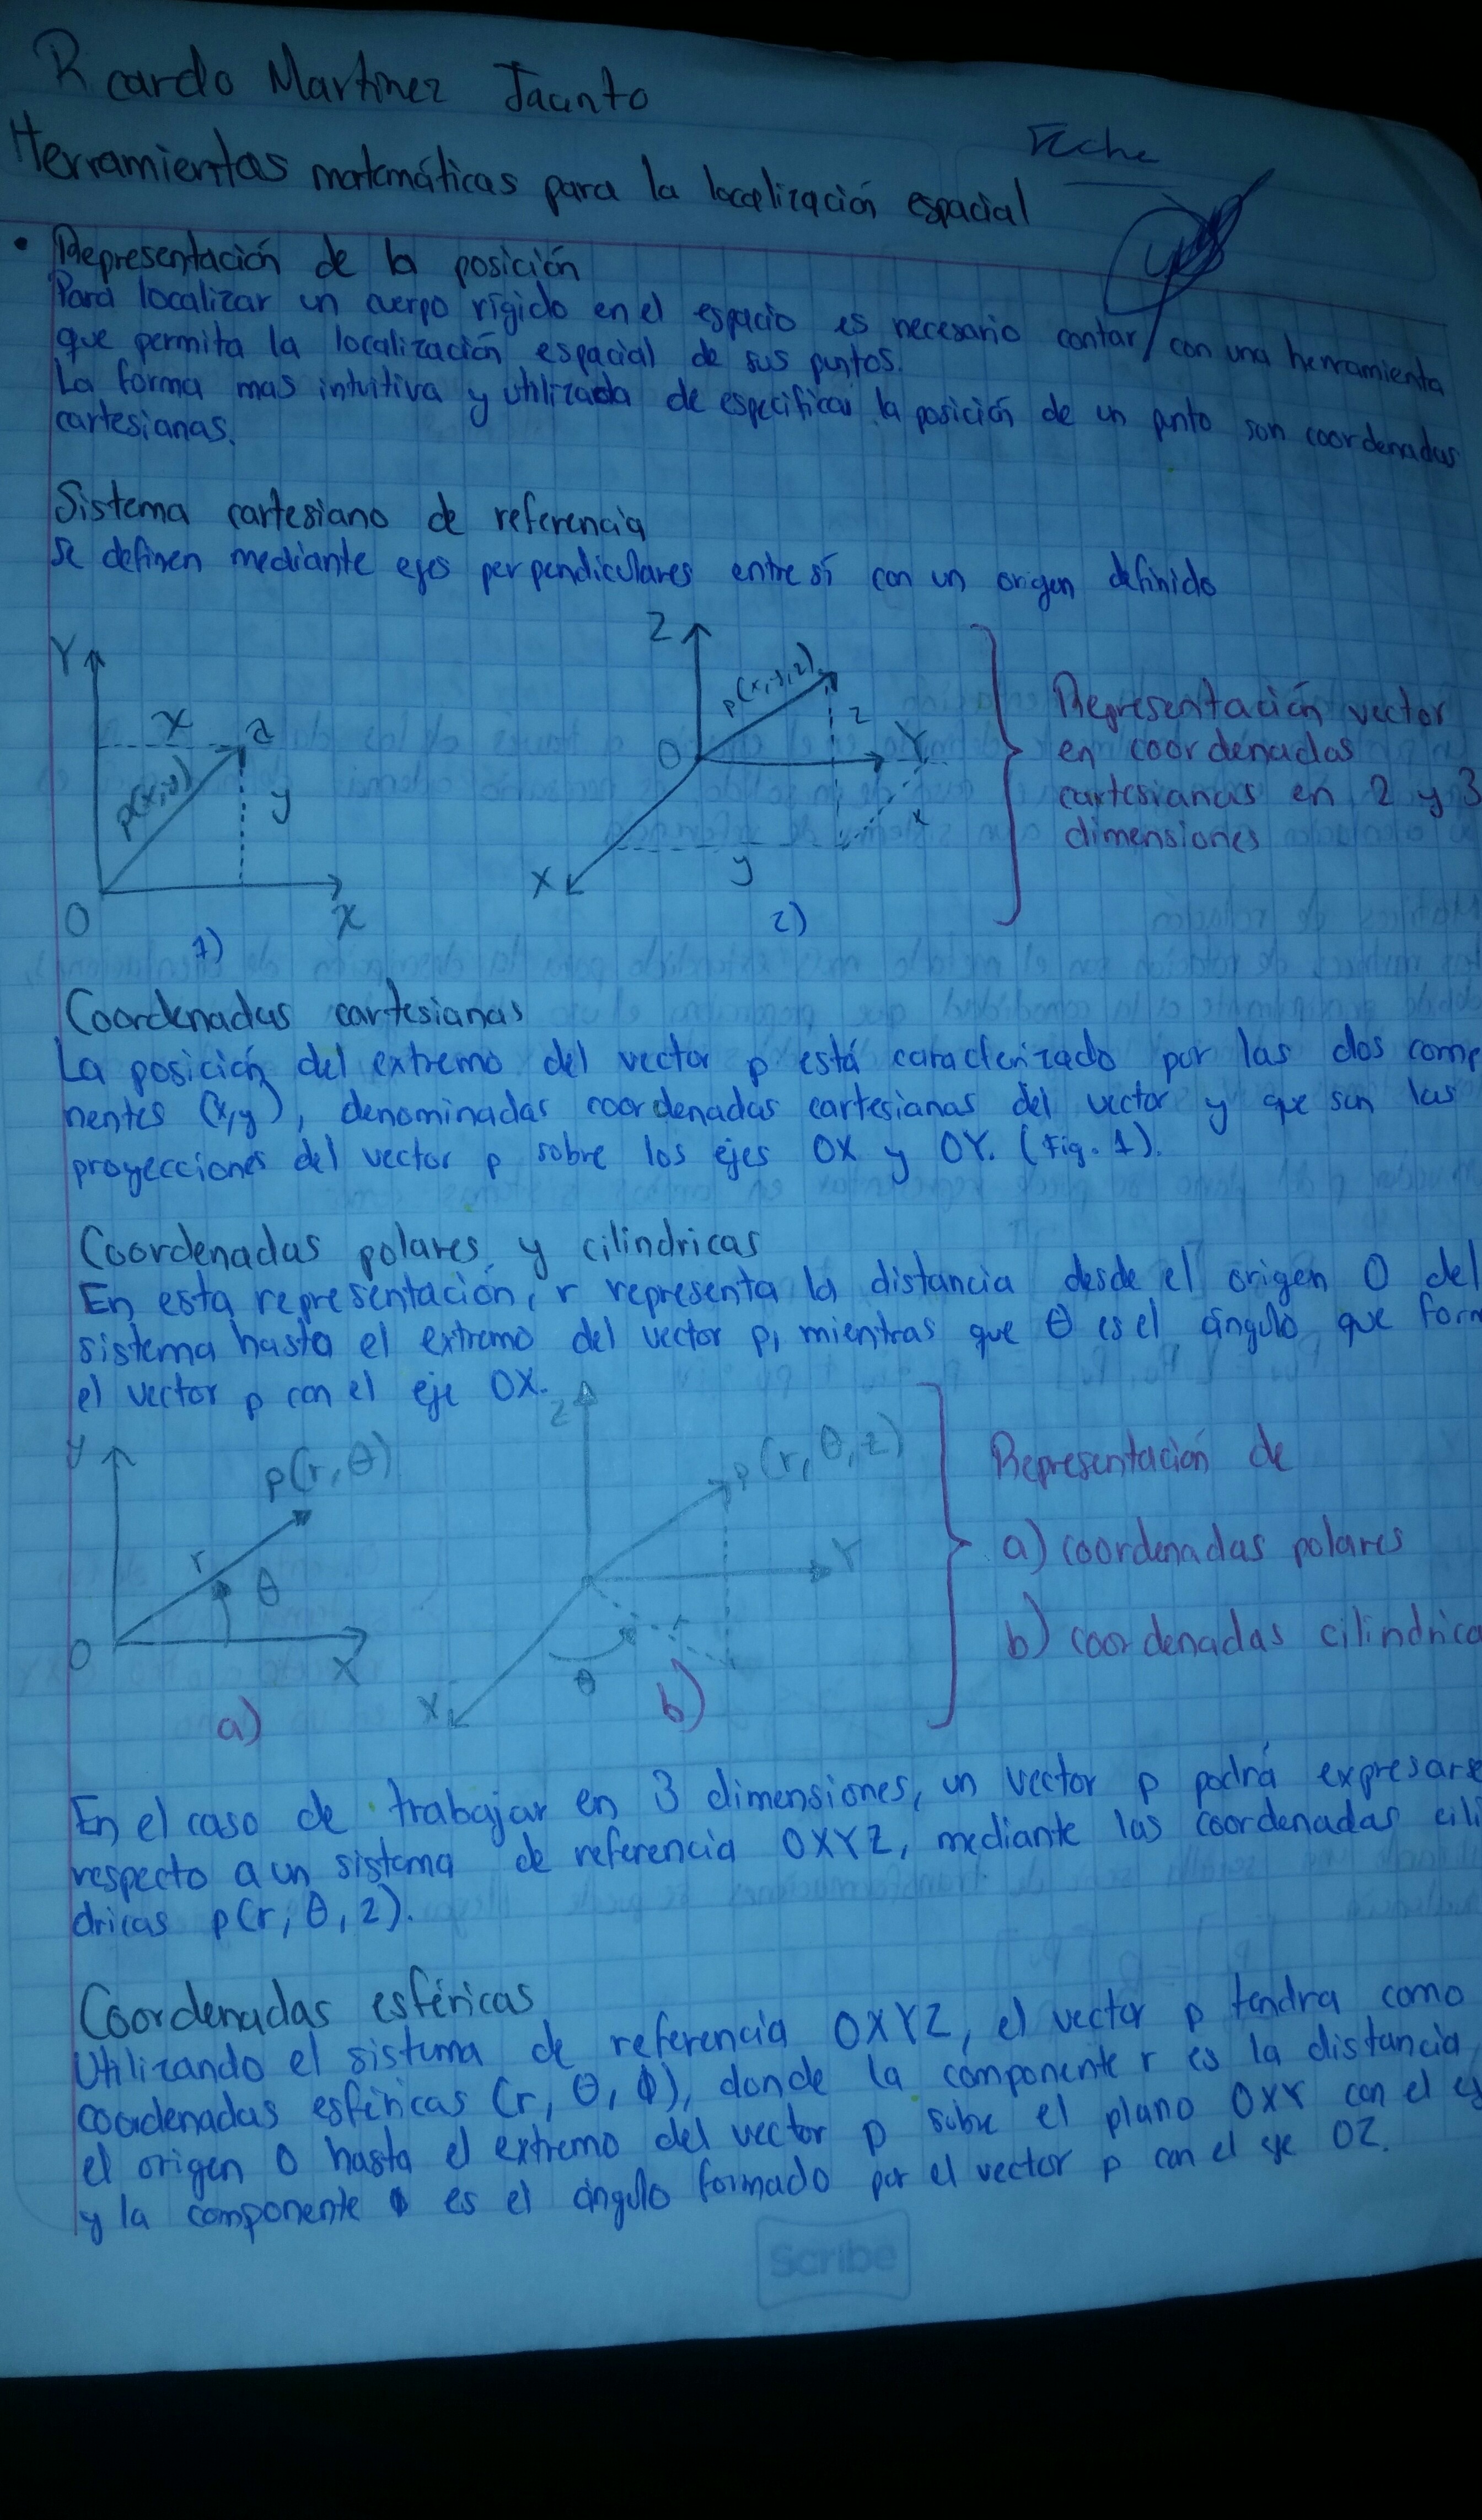 Ricardo Martinez Jacinto
Fecha
Herramientas matemáticas para la localización espacial
• Representación de la posición
Para localizar un cuerpo rígido en el espacio es necesario contar con una herramienta
que permita la localización espacial de sus puntos.
La forma mas intuitiva y utilizada de especificar la posición de un punto son coordenadas
cartesianas.
Sistema cartesiano de referencia
Se definen mediante ejes perpendiculares entre sí con un origen definido
Y
x
a
p(x,y)
y
O
X
1)
Z
p(x,y,z)
z
O
Y
x
X
y
2)
Representación vector
en coordenadas
cartesianas en 2 y 3
dimensiones
Coordenadas cartesianas
La posición del extremo del vector p está caracterizado por las dos comp
nentes (x,y), denominadas coordenadas cartesianas del vector y que son las
proyecciones del vector p sobre los ejes OX y OY. (Fig. 1).
Coordenadas polares y cilindricas
En esta representación, r representa la distancia desde el origen O del
sistema hasta el extremo del vector p, mientras que θ es el ángulo que form
el vector p con el eje OX.
y
p(r,θ)
r
θ
O
X
a)
Z
p(r,θ,z)
Y
r
θ
X
b)
Representación de
a) coordenadas polares
b) coordenadas cilindrica
En el caso de trabajar en 3 dimensiones, un vector p podrá expresarse
respecto a un sistema de referencia OXYZ, mediante las coordenadas cili
dricas p(r, θ, z).
Coordenadas esféricas
Utilizando el sistema de referencia OXYZ, el vector p tendra como
coordenadas esféricas (r, θ, ϕ), donde la componente r es la distancia
el origen O hasta el extremo del vector p sobre el plano OXY con el ej
y la componente ϕ es el ángulo formado por el vector p con el eje OZ.
Scribe